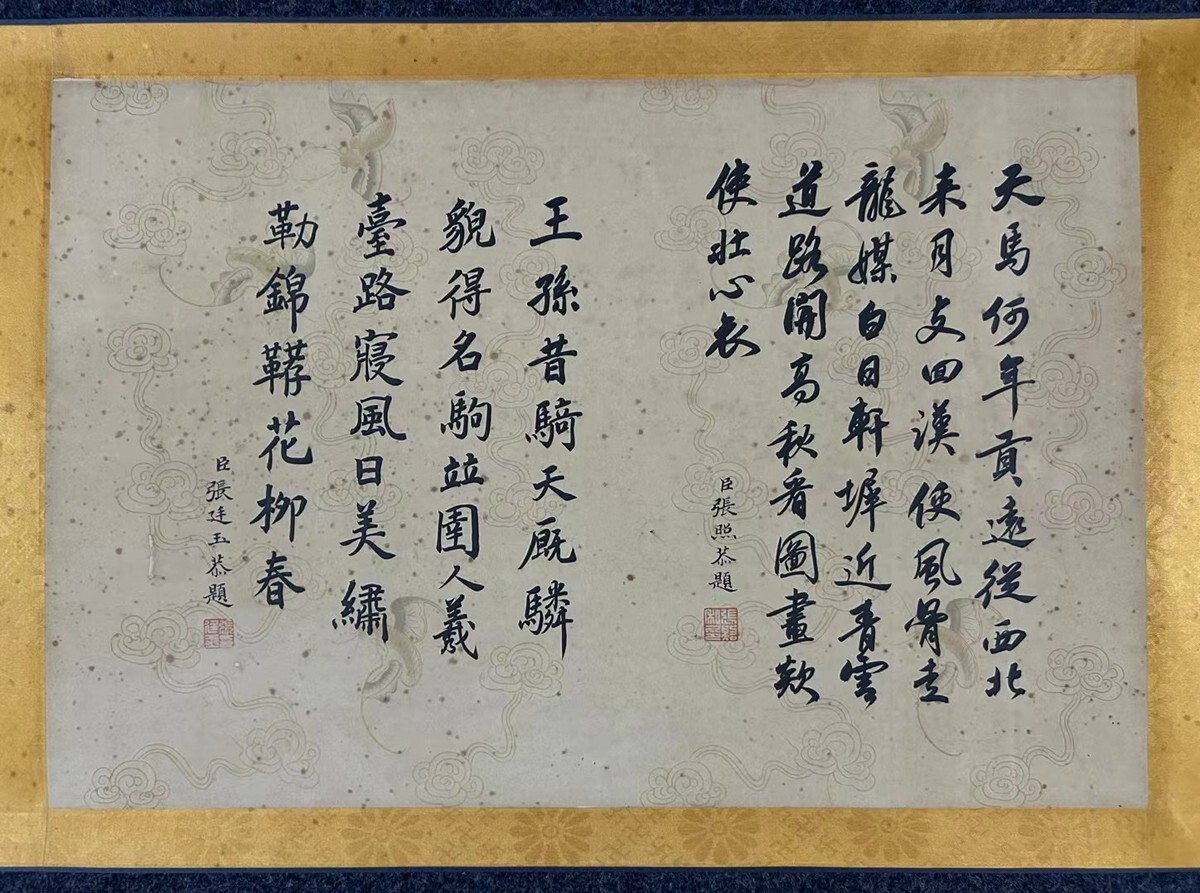 天馬何年貢遠從西北
来月支回漢使風骨走
龍媒白日軒墀近青雲
道路開高秋看圖畫歎
使壯心
臣張照恭題
王孫昔騎天厩驎
貌得名駒竝圉人義
臺路寢風日美繡
勒錦韉花柳春
臣張廷玉恭題